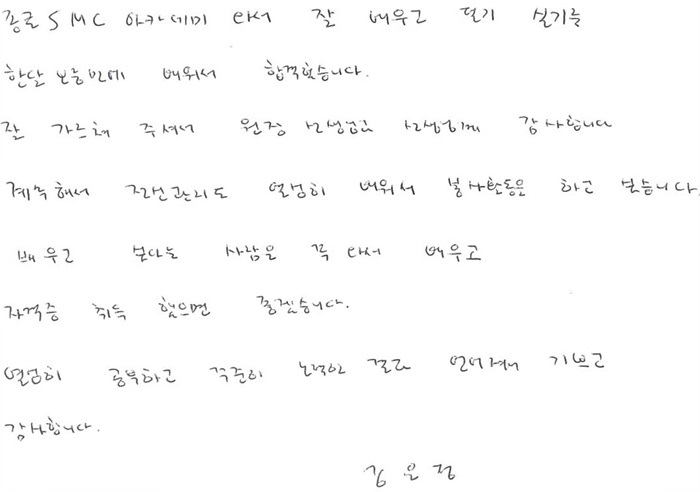 종로 SMC 아카데미 와서 잘 배우고 필기 실기를
한달 보름만에 배워서 합격했습니다.
잘 가르쳐 주셔서 원장 선생님 선생님께 감사합니다
계속해서 피선관리도 열심히 배워서 봉사활동을 하고 싶습니다.
배우고 싶다는 사람은 꼭 와서 배우고
자격증 취득 했으면 좋겠습니다.
열심히 공부하고 꾸준히 노력한 결과 얻어져서 기쁘고
감사합니다.
김은정